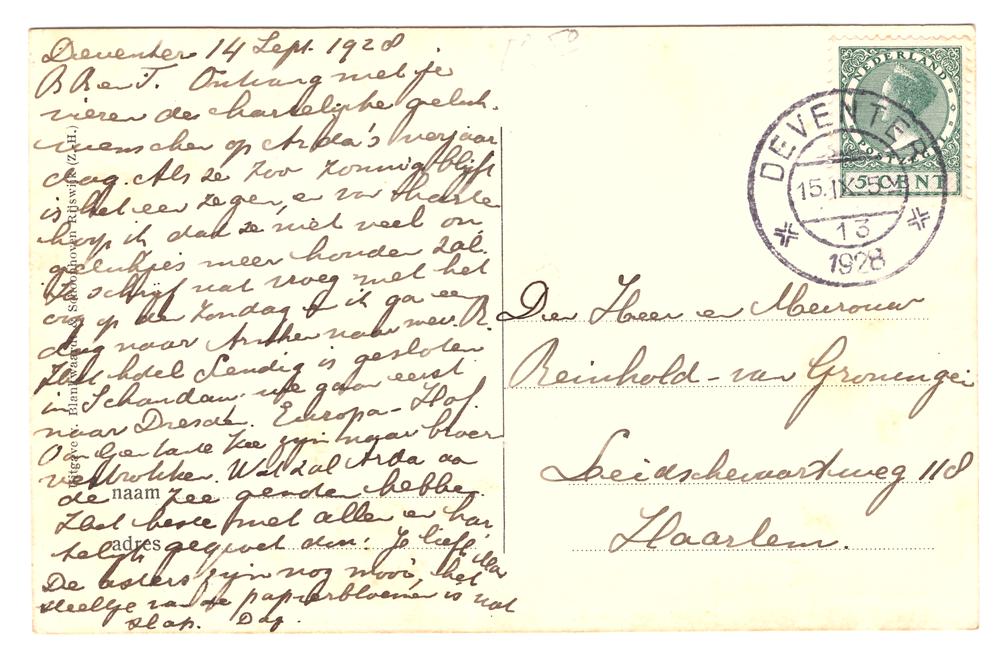 Deventer 14 Sept. 1928
B R en T. Ontvang met je
vieren de hartelijke geluk-
wenschen op Arda's verjaar
dag. Als ze zoo zonnig blijft
is het een zegen, en van harte
hoop ik dat ze niet veel on
gelukjes meer houden zal.
Ik schrijf wat vroeg met het
oog op den Zondag + ik ga een
dag naar Arnhem naar mevr. R.
Het hotel Sendig is gesloten
in Schandau. we gaan eerst
naar Dresde. Europa-Hof.
Oom Ger tante Zee zijn naar broer
vertrokken. Wat zal Arda aa
de zee genoten hebben.
Het beste met allen en har
telijk gegroet door: Je liefh.
De asters zijn nog mooi, het
steeltje van de papierbloemen is wat
slap. Dag.
naam
adres
Uitgave v. Blankwaardt & Schoonhoven Rijswijk (Z.-H.)
NEDERLAND
POSTZEGEL
5 CENT
DEVENTER
15.IX.5
13
1928
Den Heer en Mevrouw
Reinhold-van Groningen
Leidschevaartweg 118
Haarlem.